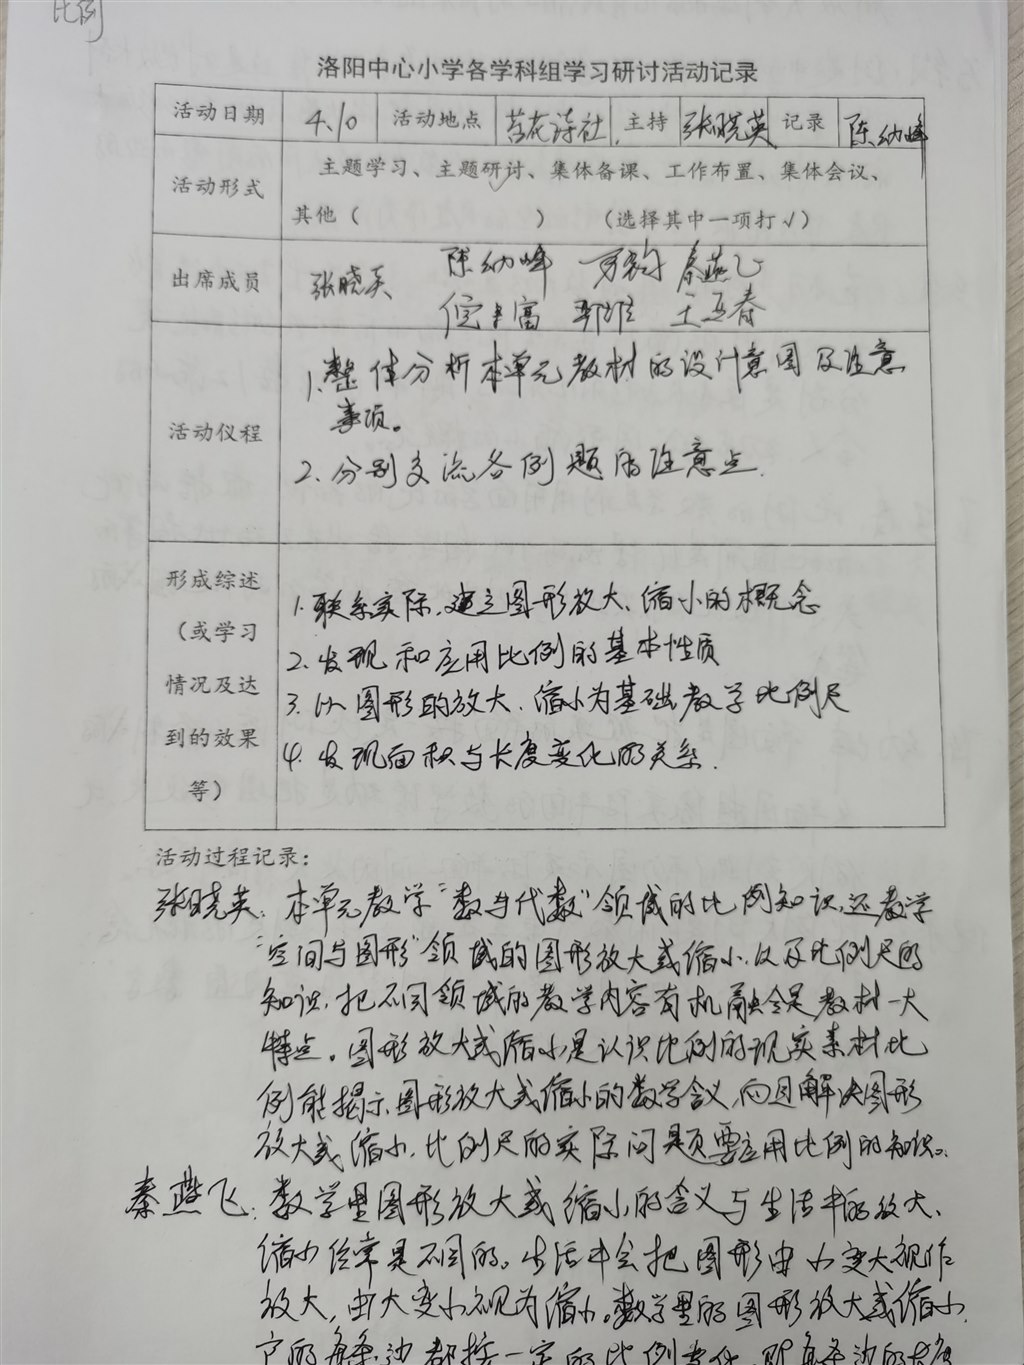 比例
洛阳中心小学各学科组学习研讨活动记录
活动日期 4.10 活动地点 苔花诗社 主持 张晓英 记录 陈幼峰
活动形式
主题学习、主题研讨、集体备课、工作布置、集体会议、
其他（ ） （选择其中一项打√）
出席成员
张晓英 陈幼峰 秦燕飞
王亚春
活动仪程
1.整体分析本单元教材的设计意图及注意
事项。
2.分别交流各例题的注意点.
形成综述
（或学习
情况及达
到的效果
等）
1.联系实际,建立图形放大、缩小的概念
2.发现和应用比例的基本性质
3.以图形的放大、缩小为基础教学比例尺
4.发现面积与长度变化的关系.
活动过程记录：
张晓英: 本单元教学“数与代数”领域的比例知识,还教学
“空间与图形”领域的图形放大或缩小,以及比例尺的
知识,把不同领域的教学内容有机融合是教材一大
特点。图形放大或缩小是认识比例的现实素材比
例能揭示图形放大或缩小的数学含义,而且解决图形
放大或缩小,比例尺的实际问题要应用比例的知识。
秦燕飞: 数学里图形放大或缩小的含义与生活中的放大、
缩小经常是不同的。生活中会把图形由小变大视作
放大,由大变小视为缩小。数学里的图形放大或缩小,
它的每条边都按一定的比例变化,即每条边的长度